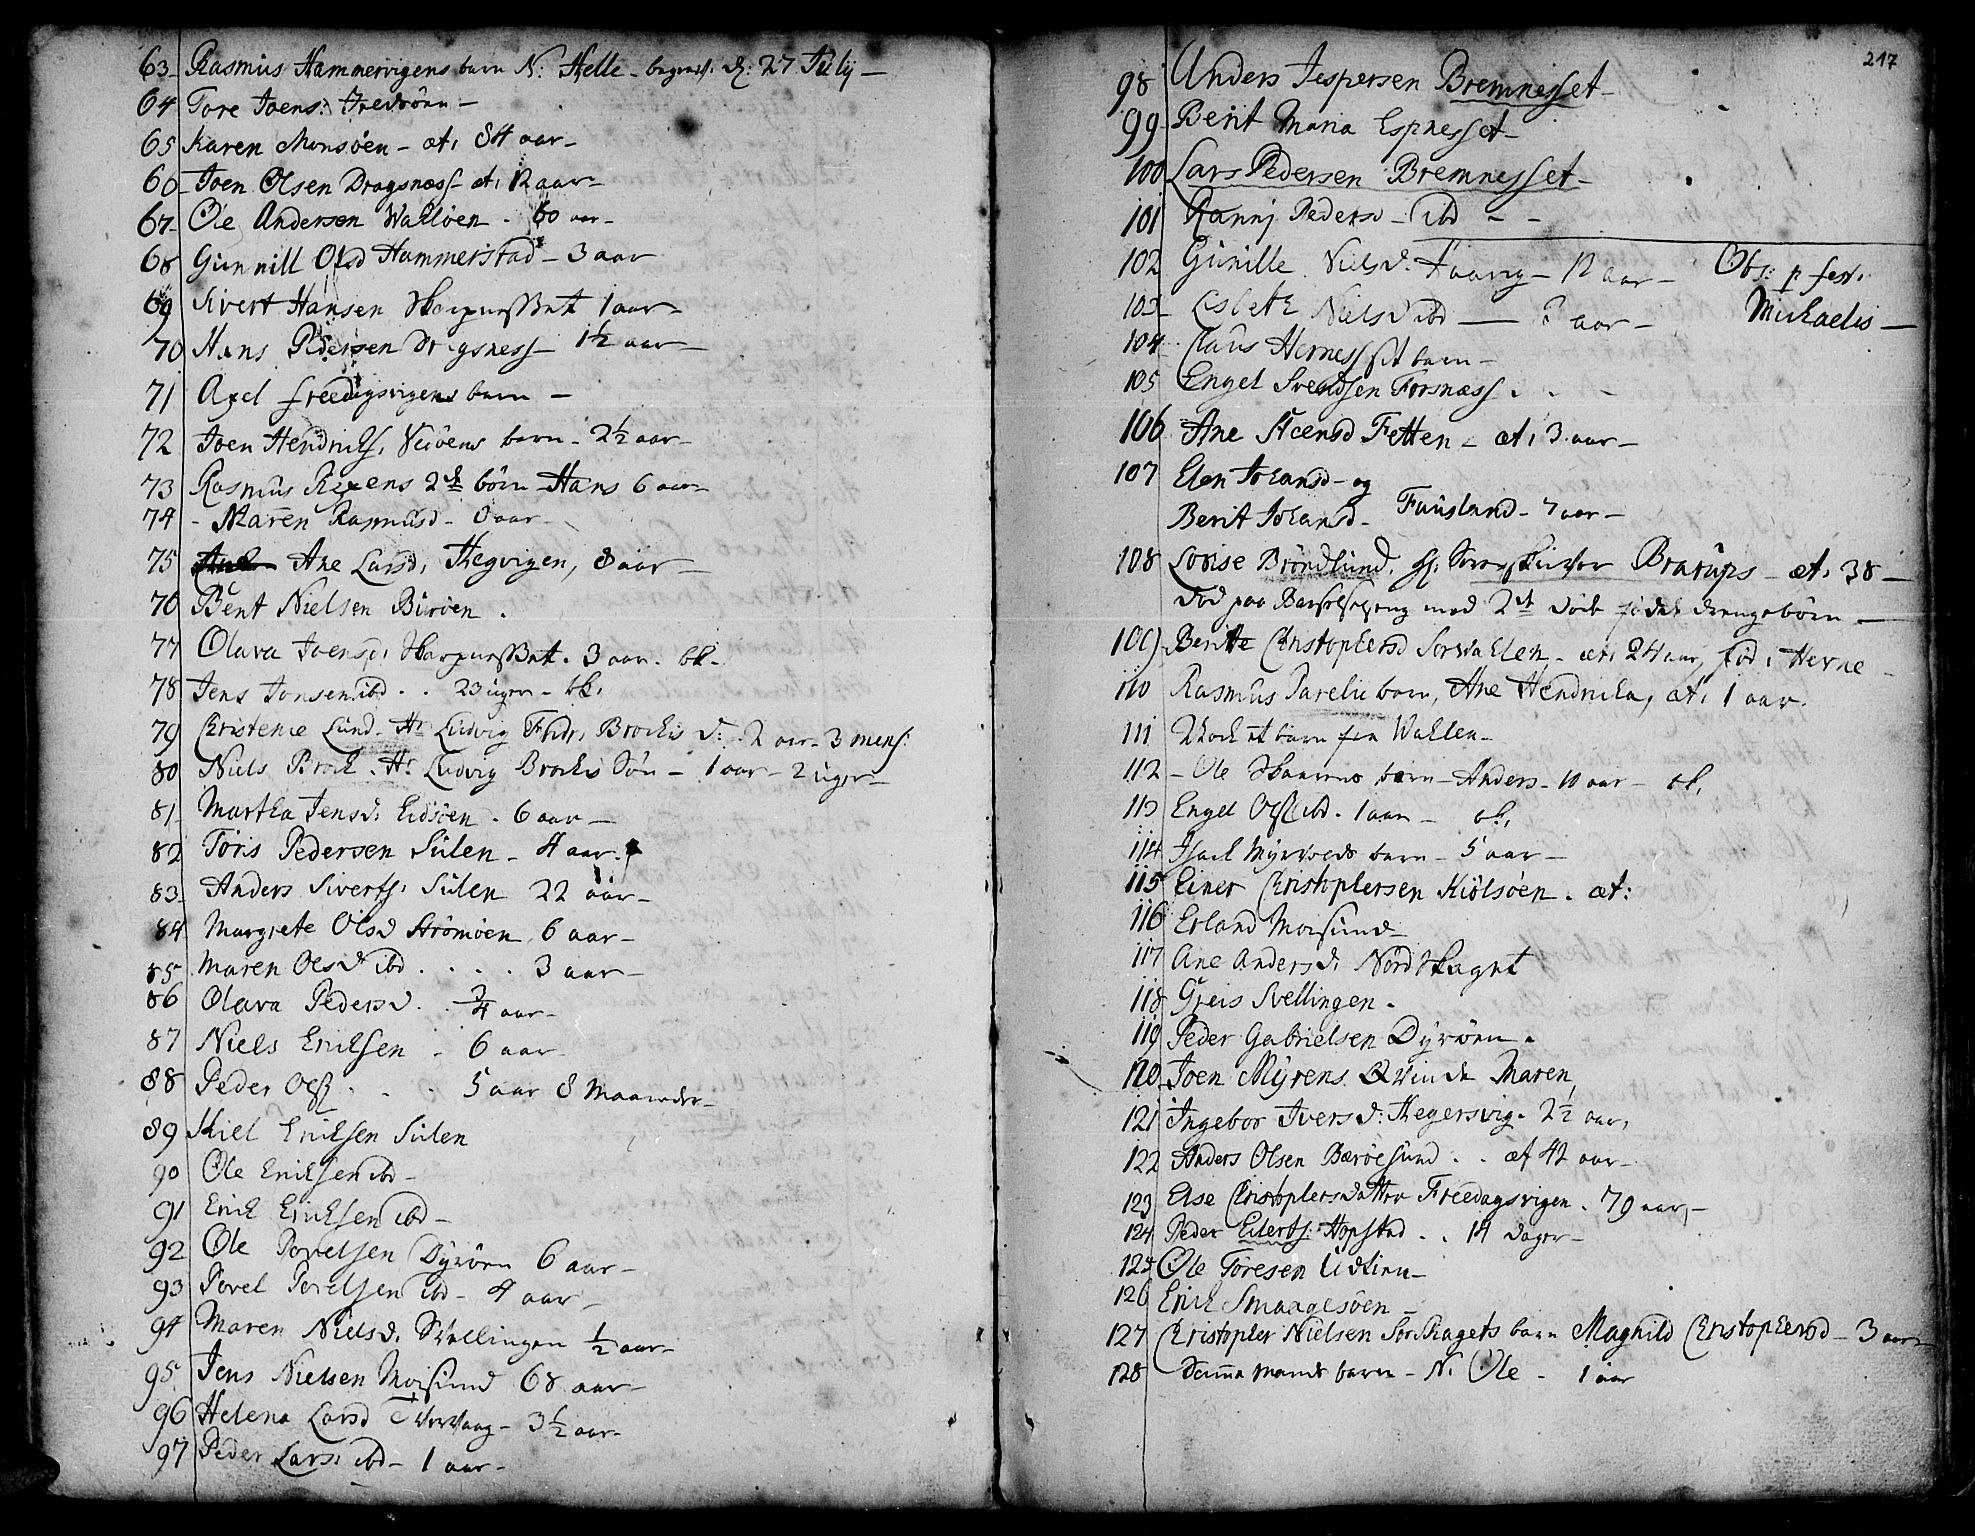 63 Rasmus Hammervigens barn N: Helle - begravet d: 27 July -
64 Tore Joens: Fredøen -
65 Karen Monsøen - æt. 84 aar -
66 Joen Olsen Dragsness - æt. 12 aar -
67 Ole Andersen Wakløen - 60 aar -
68 Gunnill Olsd Hammerstad - 3 aar
69 Sivert Hansen 1 aar -
70 Hans Pedersen Dragsness - 1½ aar -
71 Axel freedigsvigens barn -
72 Joen Hendrichs, barn - 2½ aar -
73 Rasmus 2de børn - Hans 6 aar -
74 - Maren Rasmusd - 0 aar -
75 Ane Larsd, Hegvigen, 8 aar -
76 Bent Nielsen Burøen .
77 Olava Joensd, 3 aar . bk.
78 Jens Jonsen ibd . . 23 uger - bk.
79 Christence Lund - Hr Ludvig Fridr. Brochs d: . 2 aar - 3 mens:
80 Niels Broch . Hr Ludvig Brochs Søn - 1 aar - 2 uger -
81 Martha Jensd: Eidsøen . 6 aar -
82 Toris Pedersen Sulen - 4 aar .
83 Anders Siverts, Sulen 22 aar -
84 Margrete Olsd Strømøen 6 aar -
85 Maren Olsd ibd . . . . 3 aar -
86 Olava Pedersd . . ¾ aar -
87 Niels Erichsen . 6 aar
88 Peder Ols . . . 5 aar 8 Maaneder -
89 Kiel Erichsen Sulen
90 Ole Erichsen ibd -
91 Erich Erichsen ibd -
92 Ole Povelsen Dyrøen 6 aar -
93 Povel Povelsen ibd - 4 aar -
94 Maren Nielsd. Svellingen ½ aar -
95 Jens Nielsen Moisund 68 aar -
96 Helena Larsd Tvervaag - 3½ aar -
97 Peder Lars, ibd - 1 aar -
217
98 Anders Jespersen Bremnesset -
99 Berit Maria Espnesset -
100 Lars Pedersen Bremnesset -
101 Ranni Pedersd - ibd - -
102 Gunille Nielsd. Faavig - 12 aar - Obs: p fest.
103 Lisbeth Nielsd ibd - aar - Michaelis -
104 Claus Hernessset barn -
105 Engel Svendsen Forsness . . -
106 Ane Steensd Fetten - æt. 3 aar -
107 Elen Johansd - og
Berit Johansd - Fausland - 7 aar -
108 Lovise Brøndlund, Sorenskriver Brarups - æt. 38 -
død paa Barselseng med 2de død fødde drengebørn -
109 Berite Christophersd Sørvahlen - æt. 24 aar, fød i Herne -
110 Rasmus Parelii barn, Ane Hendricka, æt. 1 aar.
111 et barn fra Wahlen -
112 - Ole barn - Anders - 10 aar - bk,
113 Engel Ols ibd . 1 aar - bk,
114 Isach Myrvolds barn - 5 aar -
115 Einer Christophersen Kiølsøen . æt:
116 Erland Moisund -
117 Ane Andersd. Nordskaget
118 Greis Svellingen .
119 Peder Gabrielsen Dyrøen .
120 Joen Myrens Qvinde Maren
121 Ingebor Iversd: Hegersvig . 2½ aar,
122 Anders Olsen Barøesund . . æt 42 aar -
123 Else Christophersdatter Freedagsvigen . 79 aar, -
124 Peder Eilerts: Hopstad . . 14 dager -
125 Ole Toresen Udtian -
126 Erich Smaagesøen -
127 Christopher Nielsen Sørskagets barn Magnild Christophersd - 3 aar
128 Samme Mands barn - N. Ole - 1 aar